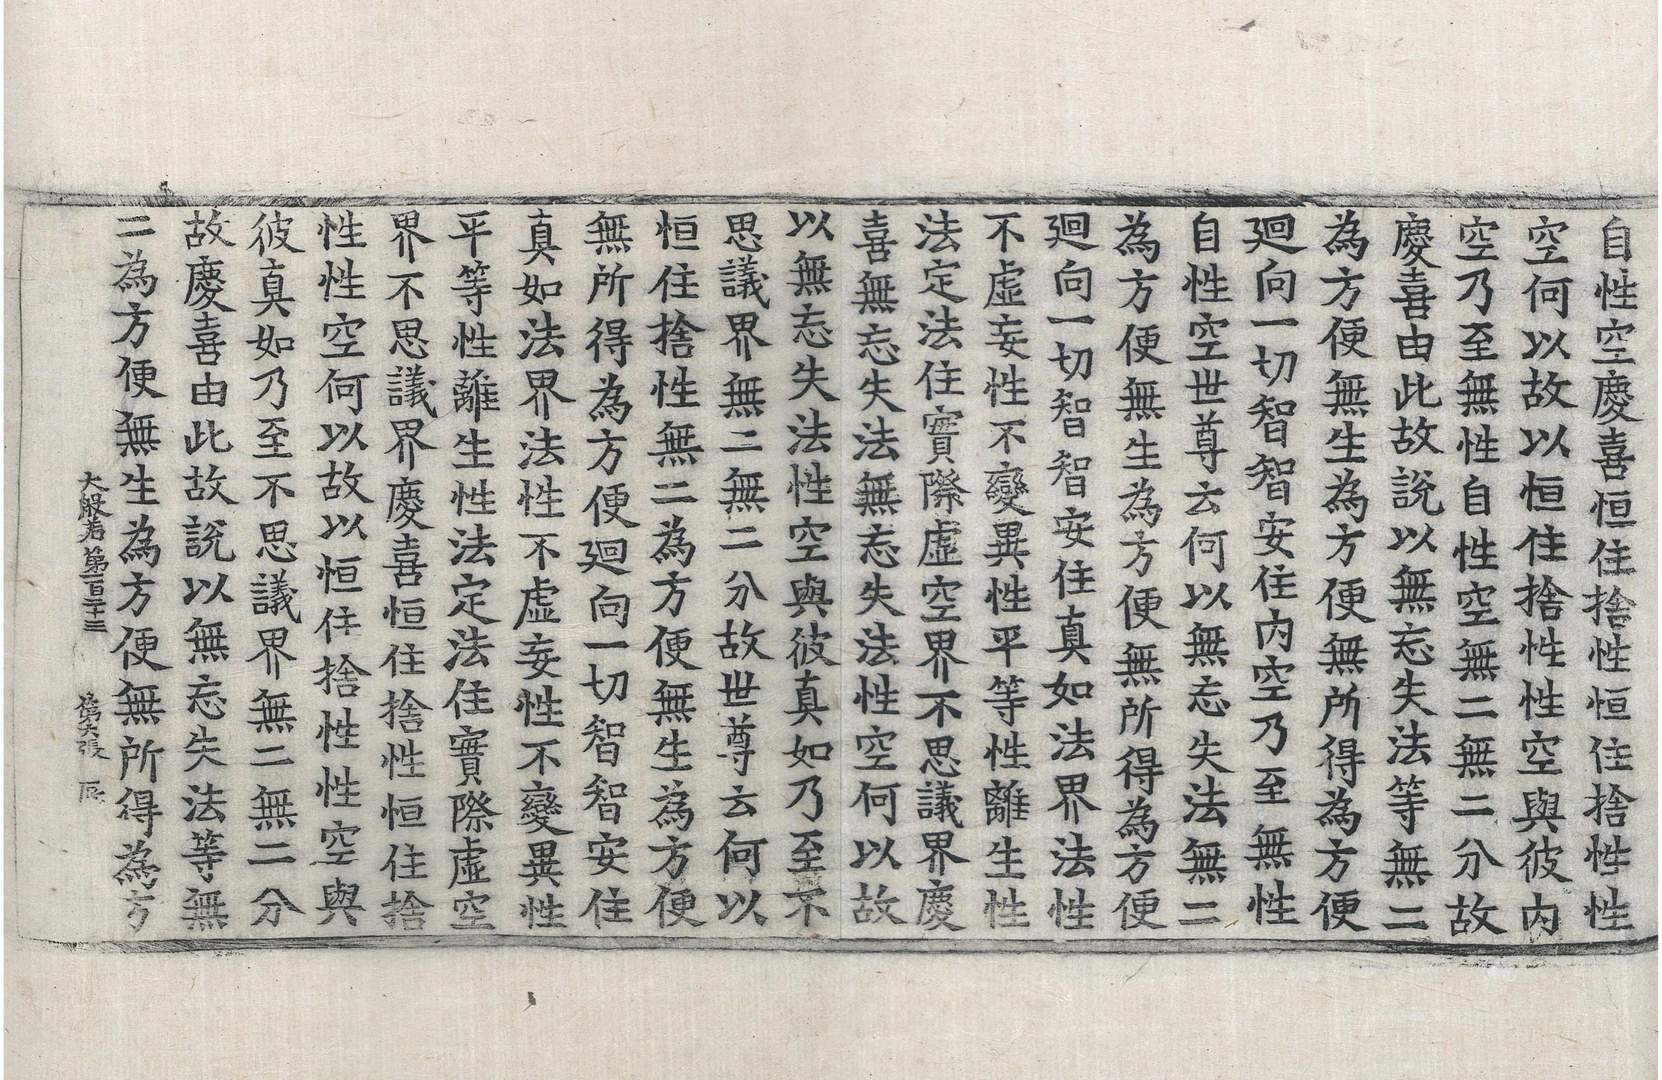 自性空慶喜恒住捨性恒住捨性性
空何以故以恒住捨性性空與彼內
空乃至無性自性空無二無二分故
慶喜由此故說以無忘失法等無二
為方便無生為方便無所得為方便
廻向一切智智安住內空乃至無性
自性空世尊云何以無忘失法無二
為方便無生為方便無所得為方便
廻向一切智智安住真如法界法性
不虛妄性不變異性平等性離生性
法定法住實際虛空界不思議界慶
喜無忘失法無忘失法性空何以故
以無忘失法性空與彼真如乃至不
思議界無二無二分故世尊云何以
恒住捨性無二為方便無生為方便
無所得為方便廻向一切智智安住
真如法界法性不虛妄性不變異性
平等性離生性法定法住實際虛空
界不思議界慶喜恒住捨性恒住捨
性性空何以故以恒住捨性性空與
彼真如乃至不思議界無二無二分
故慶喜由此故說以無忘失法等無
二為方便無生為方便無所得為方
大般若第一百二十三 張